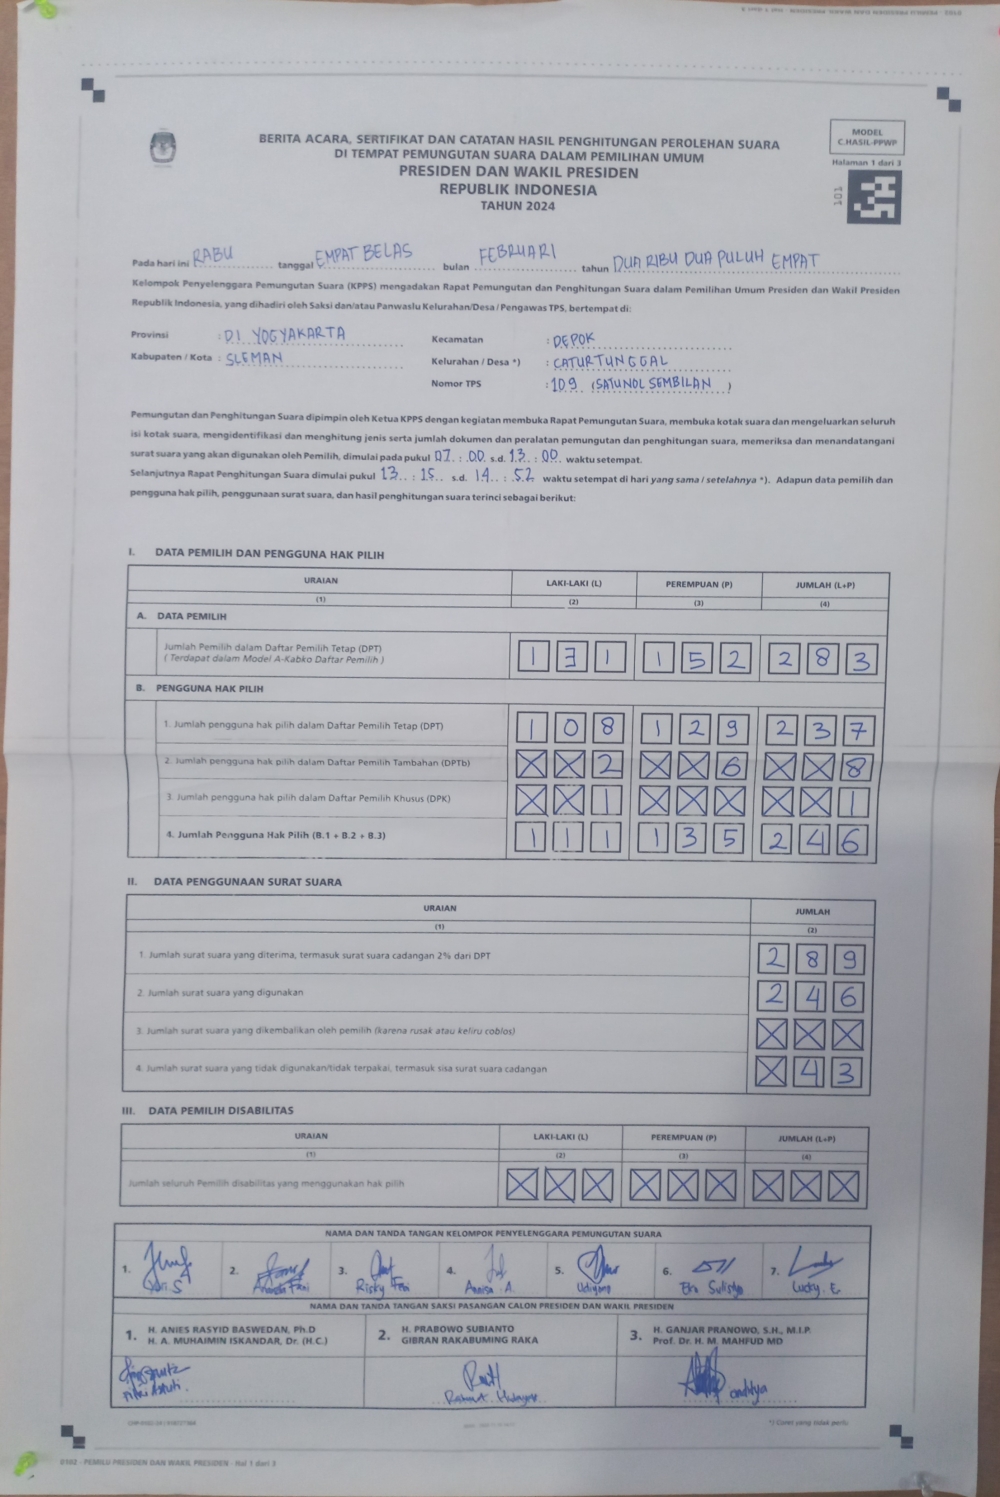 BERITA ACARA, SERTIFIKAT DAN CATATAN HASIL PENGHITUNGAN PEROLEHAN SUARA
DI TEMPAT PEMUNGUTAN SUARA DALAM PEMILIHAN UMUM
PRESIDEN DAN WAKIL PRESIDEN
REPUBLIK INDONESIA
TAHUN 2024
MODEL
C.HASIL-PPWP
Halaman 1 dari 3
101
Pada hari ini RABU tanggal EMPAT BELAS bulan FEBRUARI tahun DUA RIBU DUA PULUH EMPAT
Kelompok Penyelenggara Pemungutan Suara (KPPS) mengadakan Rapat Pemungutan dan Penghitungan Suara dalam Pemilihan Umum Presiden dan Wakil Presiden
Republik Indonesia, yang dihadiri oleh Saksi dan/atau Panwaslu Kelurahan/Desa / Pengawas TPS, bertempat di:
Provinsi : D.I. YOGYAKARTA Kecamatan : DEPOK
Kabupaten / Kota : SLEMAN Kelurahan / Desa *) : CATURTUNGGAL
Nomor TPS : 109 (SATUNOL SEMBILAN )
Pemungutan dan Penghitungan Suara dipimpin oleh Ketua KPPS dengan kegiatan membuka Rapat Pemungutan Suara, membuka kotak suara dan mengeluarkan seluruh
isi kotak suara, mengidentifikasi dan menghitung jenis serta jumlah dokumen dan peralatan pemungutan dan penghitungan suara, memeriksa dan menandatangani
surat suara yang akan digunakan oleh Pemilih, dimulai pada pukul 07 : 00 s.d. 13 : 00 waktu setempat.
Selanjutnya Rapat Penghitungan Suara dimulai pukul 13 : 15 s.d. 14 : 52 waktu setempat di hari yang sama / setelahnya *). Adapun data pemilih dan
pengguna hak pilih, penggunaan surat suara, dan hasil penghitungan suara terinci sebagai berikut:
I. DATA PEMILIH DAN PENGGUNA HAK PILIH
URAIAN LAKI-LAKI (L) PEREMPUAN (P) JUMLAH (L+P)
(1) (2) (3) (4)
A. DATA PEMILIH
Jumlah Pemilih dalam Daftar Pemilih Tetap (DPT) 1 3 1 1 5 2 2 8 3
( Terdapat dalam Model A-Kabko Daftar Pemilih )
B. PENGGUNA HAK PILIH
1. Jumlah pengguna hak pilih dalam Daftar Pemilih Tetap (DPT) 1 0 8 1 2 9 2 3 7
2. Jumlah pengguna hak pilih dalam Daftar Pemilih Tambahan (DPTb) X X 2 X X 6 X X 8
3. Jumlah pengguna hak pilih dalam Daftar Pemilih Khusus (DPK) X X 1 X X X X X 1
4. Jumlah Pengguna Hak Pilih (B.1 + B.2 + B.3) 1 1 1 1 3 5 2 4 6
II. DATA PENGGUNAAN SURAT SUARA
URAIAN JUMLAH
(1) (2)
1. Jumlah surat suara yang diterima, termasuk surat suara cadangan 2% dari DPT 2 8 9
2. Jumlah surat suara yang digunakan 2 4 6
3. Jumlah surat suara yang dikembalikan oleh pemilih (karena rusak atau keliru coblos) X X X
4. Jumlah surat suara yang tidak digunakan/tidak terpakai, termasuk sisa surat suara cadangan X 4 3
III. DATA PEMILIH DISABILITAS
URAIAN LAKI-LAKI (L) PEREMPUAN (P) JUMLAH (L+P)
(1) (2) (3) (4)
Jumlah seluruh Pemilih disabilitas yang menggunakan hak pilih X X X X X X X X X
NAMA DAN TANDA TANGAN KELOMPOK PENYELENGGARA PEMUNGUTAN SUARA
1. 2. 3. 4. 5. 6. 7.
Risky Annisa A. Udiyono Sulistyo Ludry. E
NAMA DAN TANDA TANGAN SAKSI PASANGAN CALON PRESIDEN DAN WAKIL PRESIDEN
1. H. ANIES RASYID BASWEDAN, Ph.D
H. A. MUHAIMIN ISKANDAR, Dr. (H.C.)
2. H. PRABOWO SUBIANTO
GIBRAN RAKABUMING RAKA
3. H. GANJAR PRANOWO, S.H., M.I.P.
Prof. Dr. H. M. MAHFUD MD
Fitri Astuti. Raditya
*) Coret yang tidak perlu
0102 - PEMILU PRESIDEN DAN WAKIL PRESIDEN - Hal 1 dari 3